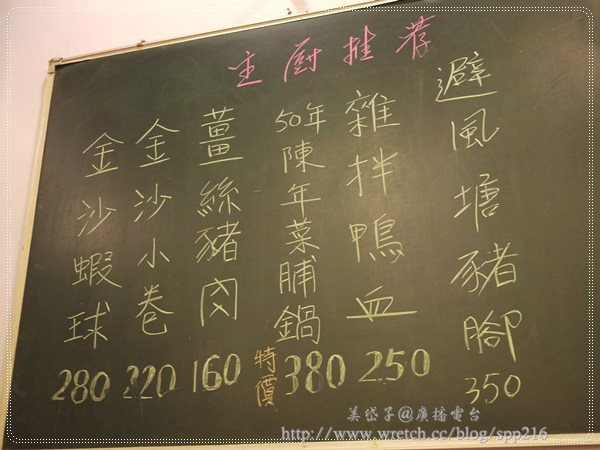 主廚推荐
避風塘豬腳 350
雜拌鴨血 250
50年陳年菜脯鍋 特價 380
薑絲豬肉 160
金沙小卷 220
金沙蝦球 280
美岱子@廣播電台
http://www.wretch.cc/blog/spp216